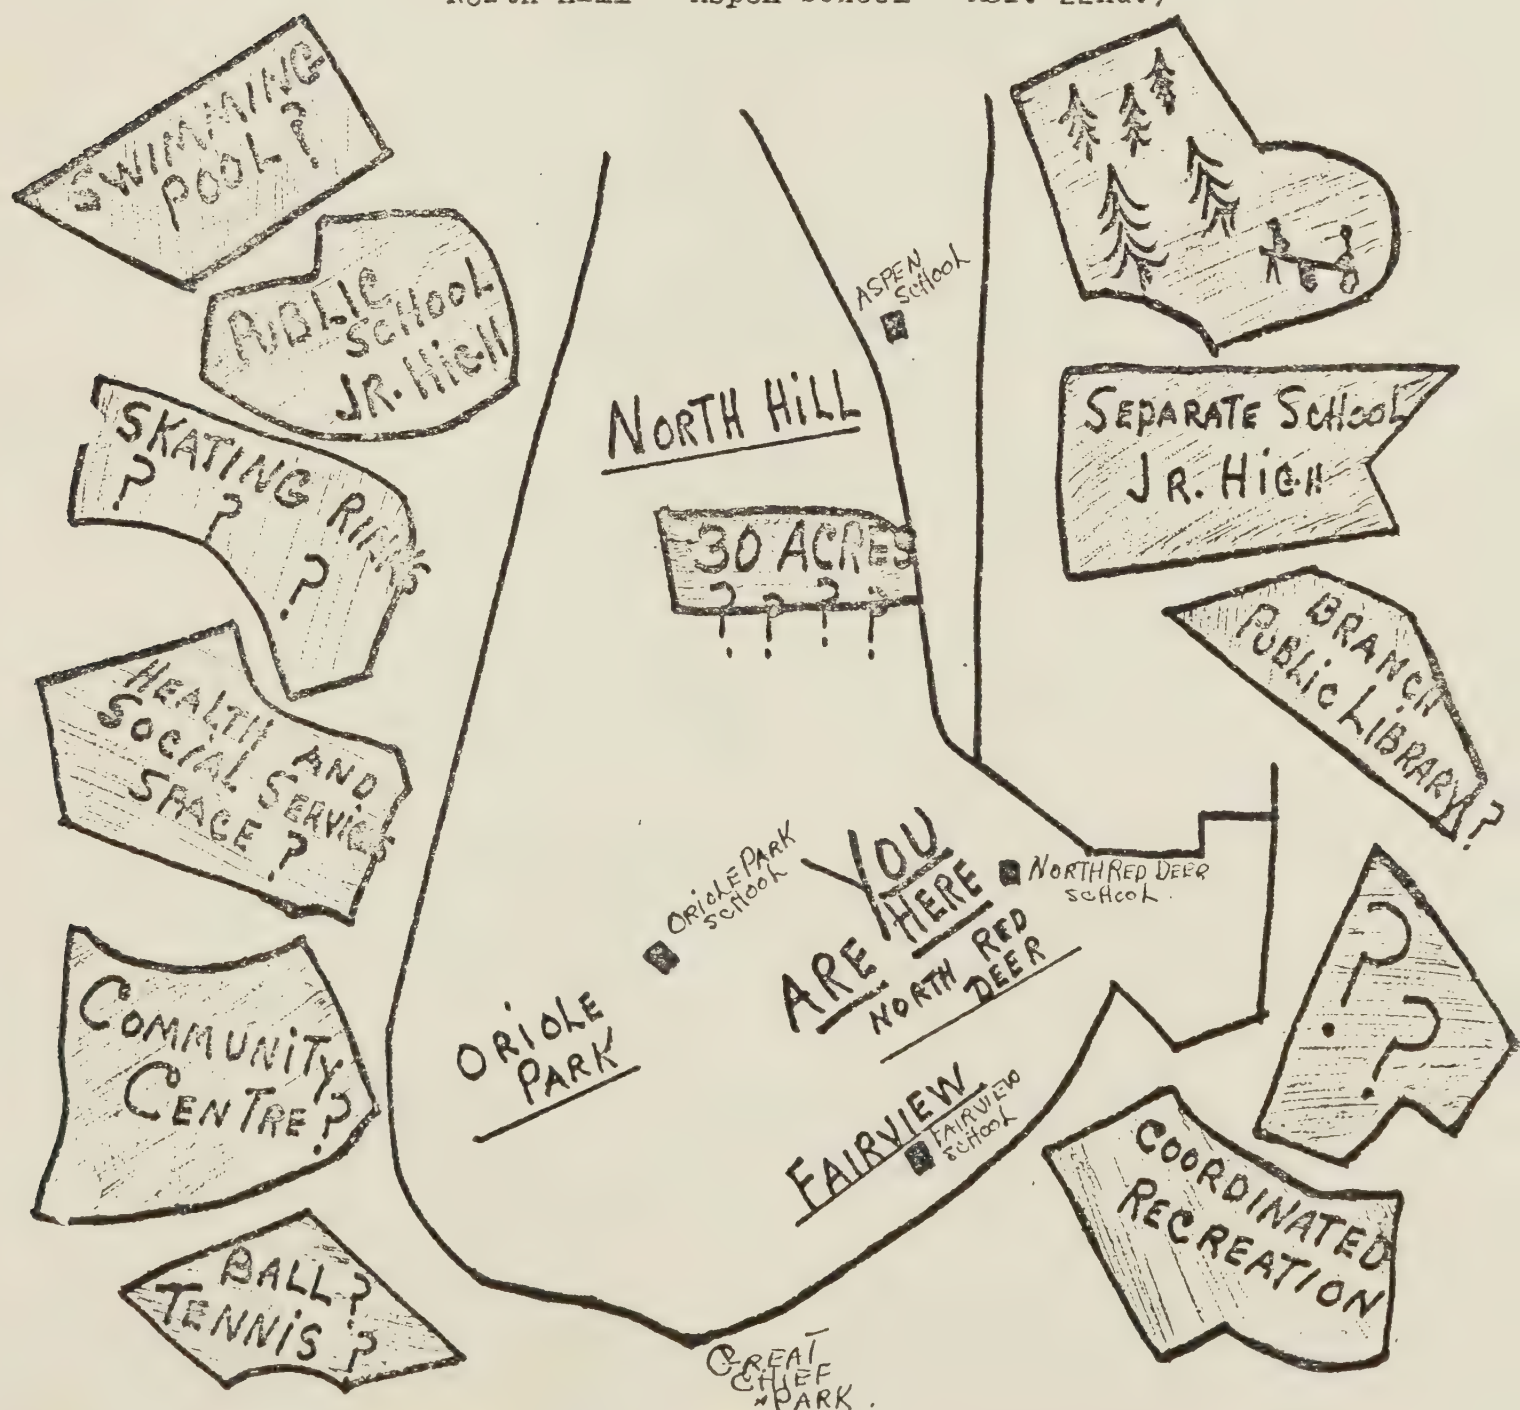 SWIMMING
POOL?
PUBLIC
SCHOOL
JR. HIGH
SKATING RINKS
? ? ?
HEALTH AND
SOCIAL SERVICES
SPACE?
COMMUNITY
CENTRE?
BALL?
TENNIS?
ASPEN
SCHOOL
NORTH HILL
30 ACRES
? ? ? ?
ORIOLE PARK
SCHOOL
YOU
ARE HERE
NORTH RED
DEER
NORTH RED DEER
SCHOOL.
ORIOLE
PARK
FAIRVIEW
FAIRVIEW
SCHOOL
GREAT
CHIEF
PARK.
SEPARATE SCHOOL
JR. HIGH
BRANCH
PUBLIC LIBRARY?
?
?
COORDINATED
RECREATION